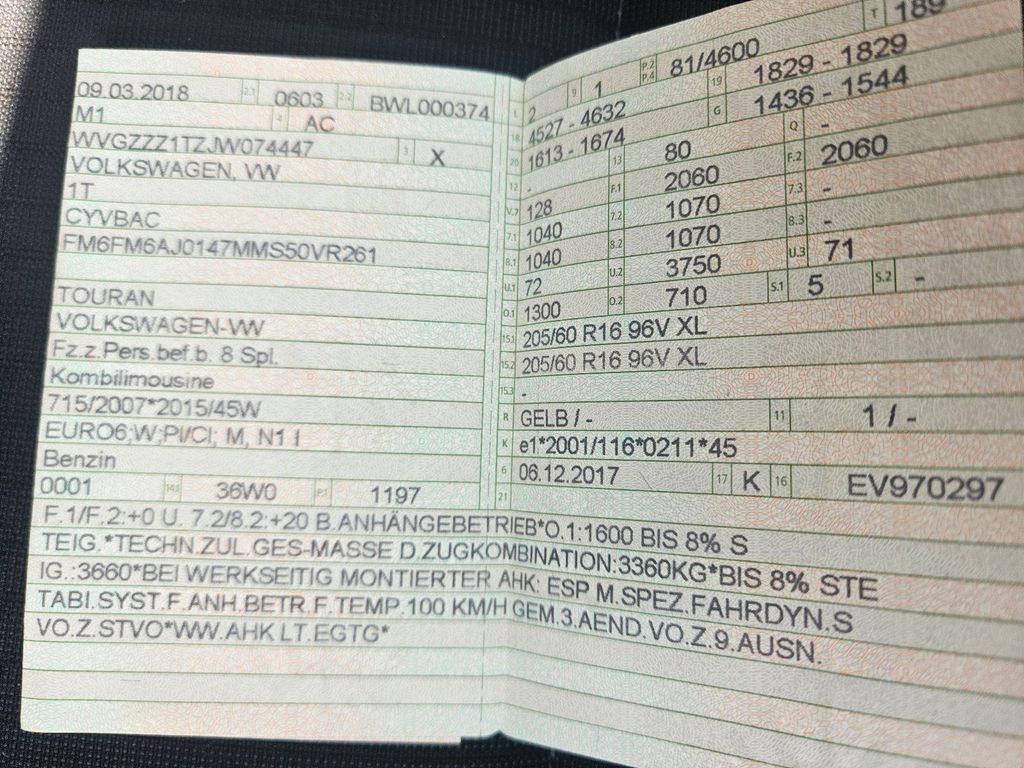 09.03.2018 2.1 0603 2.2 BWL000374
M1 4 AC
WVGZZZ1TZJW074447 3 X
VOLKSWAGEN, VW
1T
CYVBAC
FM6FM6AJ0147MMS50VR261
TOURAN
VOLKSWAGEN-VW
Fz.z.Pers.bef.b. 8 Spl.
Kombilimousine
715/2007*2015/45W
EURO6;W;PI/CI; M, N1 I
Benzin
0001 14.1 36W0 P.1 1197
1 2 9 1 P.2 P.4 81/4600 T 189
18 4527 - 4632 19 1829 - 1829
20 1613 - 1674 G 1436 - 1544
12 - 13 80 Q -
V.7 128 F.1 2060 F.2 2060
7.1 1040 7.2 1070 7.3 -
8.1 1040 8.2 1070 8.3 -
U.1 72 U.2 3750 U.3 71
O.1 1300 O.2 710 S.1 5 S.2 -
15.1 205/60 R16 96V XL
15.2 205/60 R16 96V XL
15.3 -
R GELB / - 11 1 / -
K e1*2001/116*0211*45
6 06.12.2017 17 K 16 EV970297
21
F.1/F.2:+0 U. 7.2/8.2:+20 B.ANHÄNGEBETRIEB*O.1:1600 BIS 8% S
TEIG.*TECHN.ZUL.GES-MASSE D.ZUGKOMBINATION:3360KG*BIS 8% STE
IG.:3660*BEI WERKSEITIG MONTIERTER AHK: ESP M.SPEZ.FAHRDYN.S
TABI.SYST.F.ANH.BETR.F.TEMP.100 KM/H GEM.3.AEND.VO.Z.9.AUSN.
VO.Z.STVO*WW.AHK LT.EGTG*